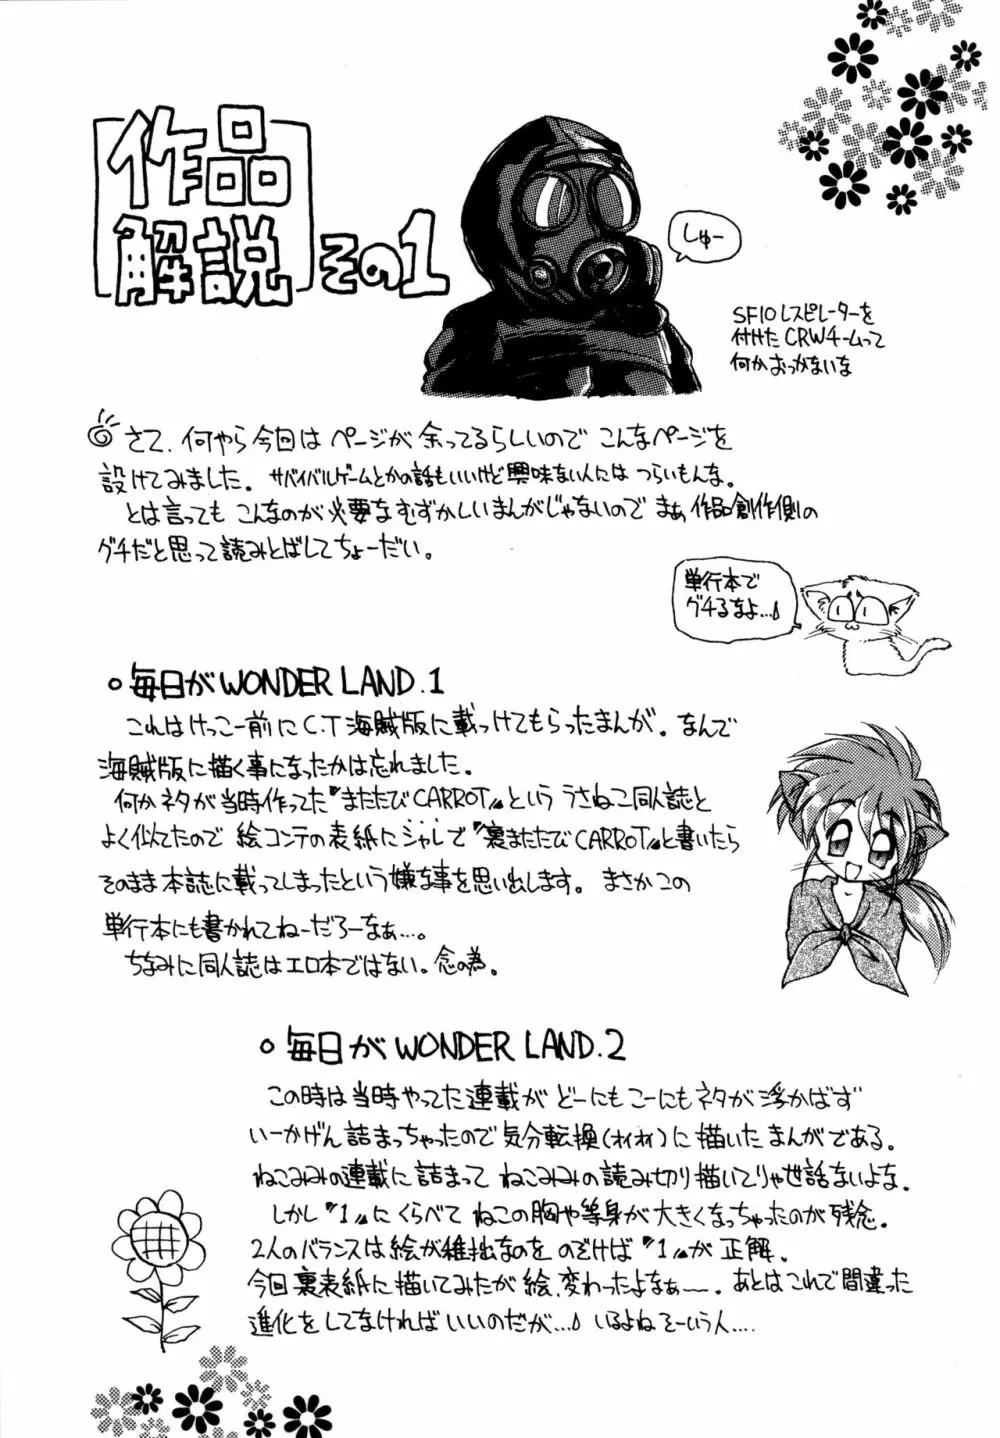 作品
解説 その1
しゅー
SF10レスピレーターを
付けたCRWチームって
何かおっかないな
さて、何やら今回はページが余ってるらしいのでこんなページを
設けてみました。サバイバルゲームとかの話もいいけど興味ない人にはつらいもんな。
とは言ってもこんなのが必要なむずかしいまんがじゃないのでまぁ作品創作側の
グチだと思って読みとばしてちょーだい。
単行本で
グチるなよ…♪
○毎日がWONDER LAND.1
これはけっこー前にC.T海賊版に載っけてもらったまんが。なんで
海賊版に描く事になったかは忘れました。
何かネタが当時作ってた『またたびCARROT』といううさねこ同人誌と
よく似てたので絵コンテの表紙にシャレで『裏またたびCARROT』と書いたら
そのまま本誌に載ってしまったという嫌な事を思い出します。まさかこの
単行本にも書かれてねーだろーなぁ…。
ちなみに同人誌はエロ本ではない。念の為。
○毎日がWONDER LAND.2
この時は当時やってた連載がどーにもこーにもネタが浮かばず
いーかげん詰まっちゃったので気分転換(オイオイ)に描いたまんがである。
ねこみみの連載に詰まってねこみみの読み切り描いてりゃ世話ないよな。
しかし『1』にくらべてねこの胸や等身が大きくなっちゃったのが残念。
2人のバランスは絵が稚拙なのをのぞけば『1』が正解。
今回裏表紙に描いてみたが絵、変わったよなぁ〜。あとはこれで間違った
進化をしてなければいいのだが…♪いるよねそーいう人…。